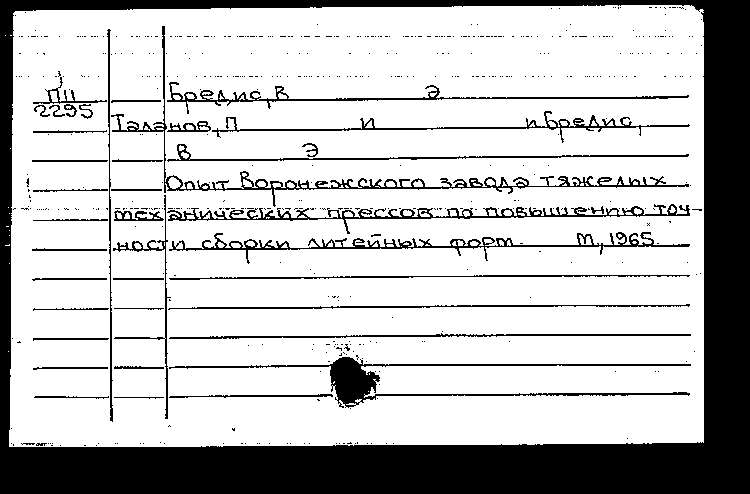 П11
2295
Бредис, В Э
Таланов, П И и Бредис,
В Э
Опыт Воронежского завода тяжелых
механических прессов по повышению точ-
ности сборки литейных форм. М., 1965.